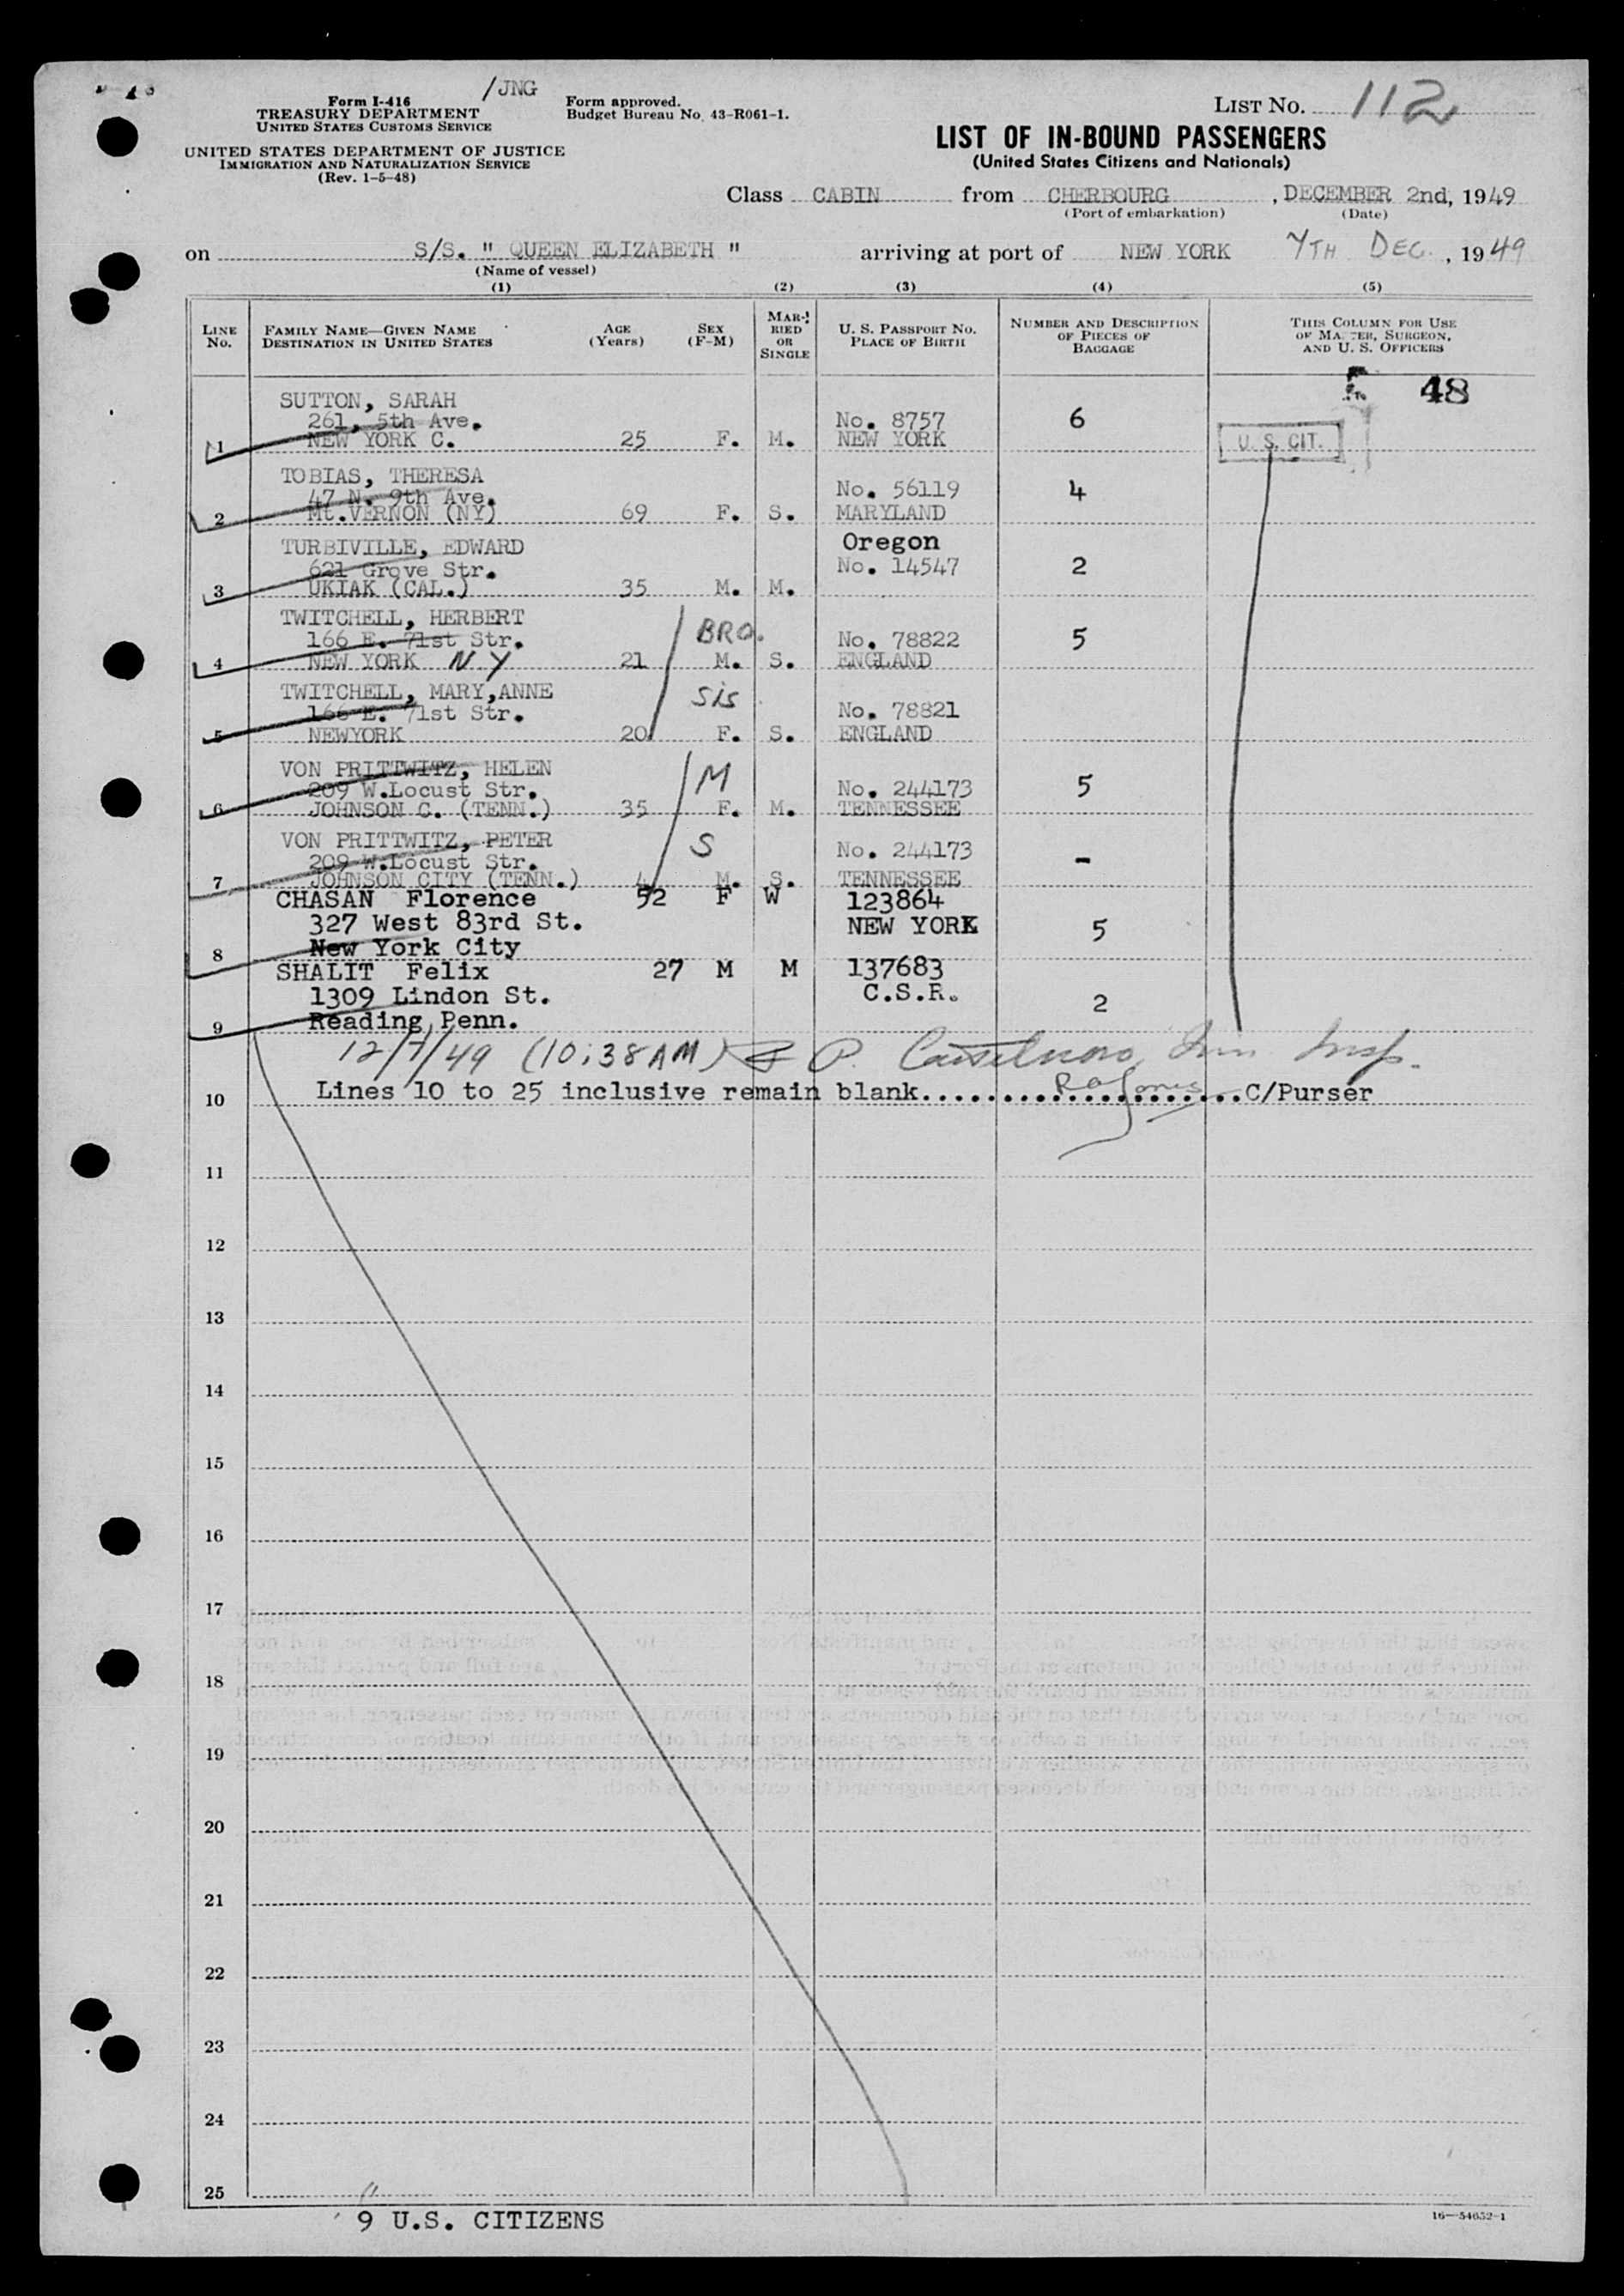 /JNG
Form I-416
TREASURY DEPARTMENT
UNITED STATES CUSTOMS SERVICE
UNITED STATES DEPARTMENT OF JUSTICE
IMMIGRATION AND NATURALIZATION SERVICE
(Rev. 1-5-48)
Form approved.
Budget Bureau No. 43-R061-1.
LIST NO. 112
LIST OF IN-BOUND PASSENGERS
(United States Citizens and Nationals)
Class CABIN from CHERBOURG, DECEMBER 2nd, 1949
(Port of embarkation) (Date)
on S/S. " QUEEN ELIZABETH " arriving at port of NEW YORK 7TH DEC., 1949
(Name of vessel)
(1) (2) (3) (4) (5)
LINE No. FAMILY NAME—GIVEN NAME DESTINATION IN UNITED STATES AGE (Years) SEX (F-M) MARRIED OR SINGLE U. S. PASSPORT NO. PLACE OF BIRTH NUMBER AND DESCRIPTION OF PIECES OF BAGGAGE THIS COLUMN FOR USE OF MASTER, SURGEON, AND U. S. OFFICERS
48
SUTTON, SARAH
261, 5th Ave. No. 8757 6
1 NEW YORK C. 25 F. M. NEW YORK U. S. CIT.
TOBIAS, THERESA
47 N. 9th Ave. No. 56119 4
2 Mt.VERNON (NY) 69 F. S. MARYLAND
TURBIVILLE, EDWARD Oregon
621 Grove Str. No. 14547 2
3 UKIAK (CAL.) 35 M. M.
TWITCHELL, HERBERT BRO.
166 E. 71st Str. No. 78822 5
4 NEW YORK N.Y 21 M. S. ENGLAND
TWITCHELL, MARY,ANNE Sis
166 E. 71st Str. No. 78821
5 NEWYORK 20 F. S. ENGLAND
VON PRITTWITZ, HELEN M
209 W.Locust Str. No. 244173 5
6 JOHNSON C. (TENN.) 35 F. M. TENNESSEE
VON PRITTWITZ, PETER S
209 W.Locust Str. No. 244173 -
7 JOHNSON CITY (TENN.) 4 M. S. TENNESSEE
CHASAN Florence 52 F W 123864
327 West 83rd St. NEW YORK 5
8 New York City
SHALIT Felix 27 M M 137683
1309 Lindon St. C.S.R. 2
9 Reading, Penn.
12/7/49 (10:38AM) P. Imm. Insp.
10 Lines 10 to 25 inclusive remain blank....................C/Purser
11
12
13
14
15
16
17
18
19
20
21
22
23
24
25
9 U.S. CITIZENS
16—54652-1